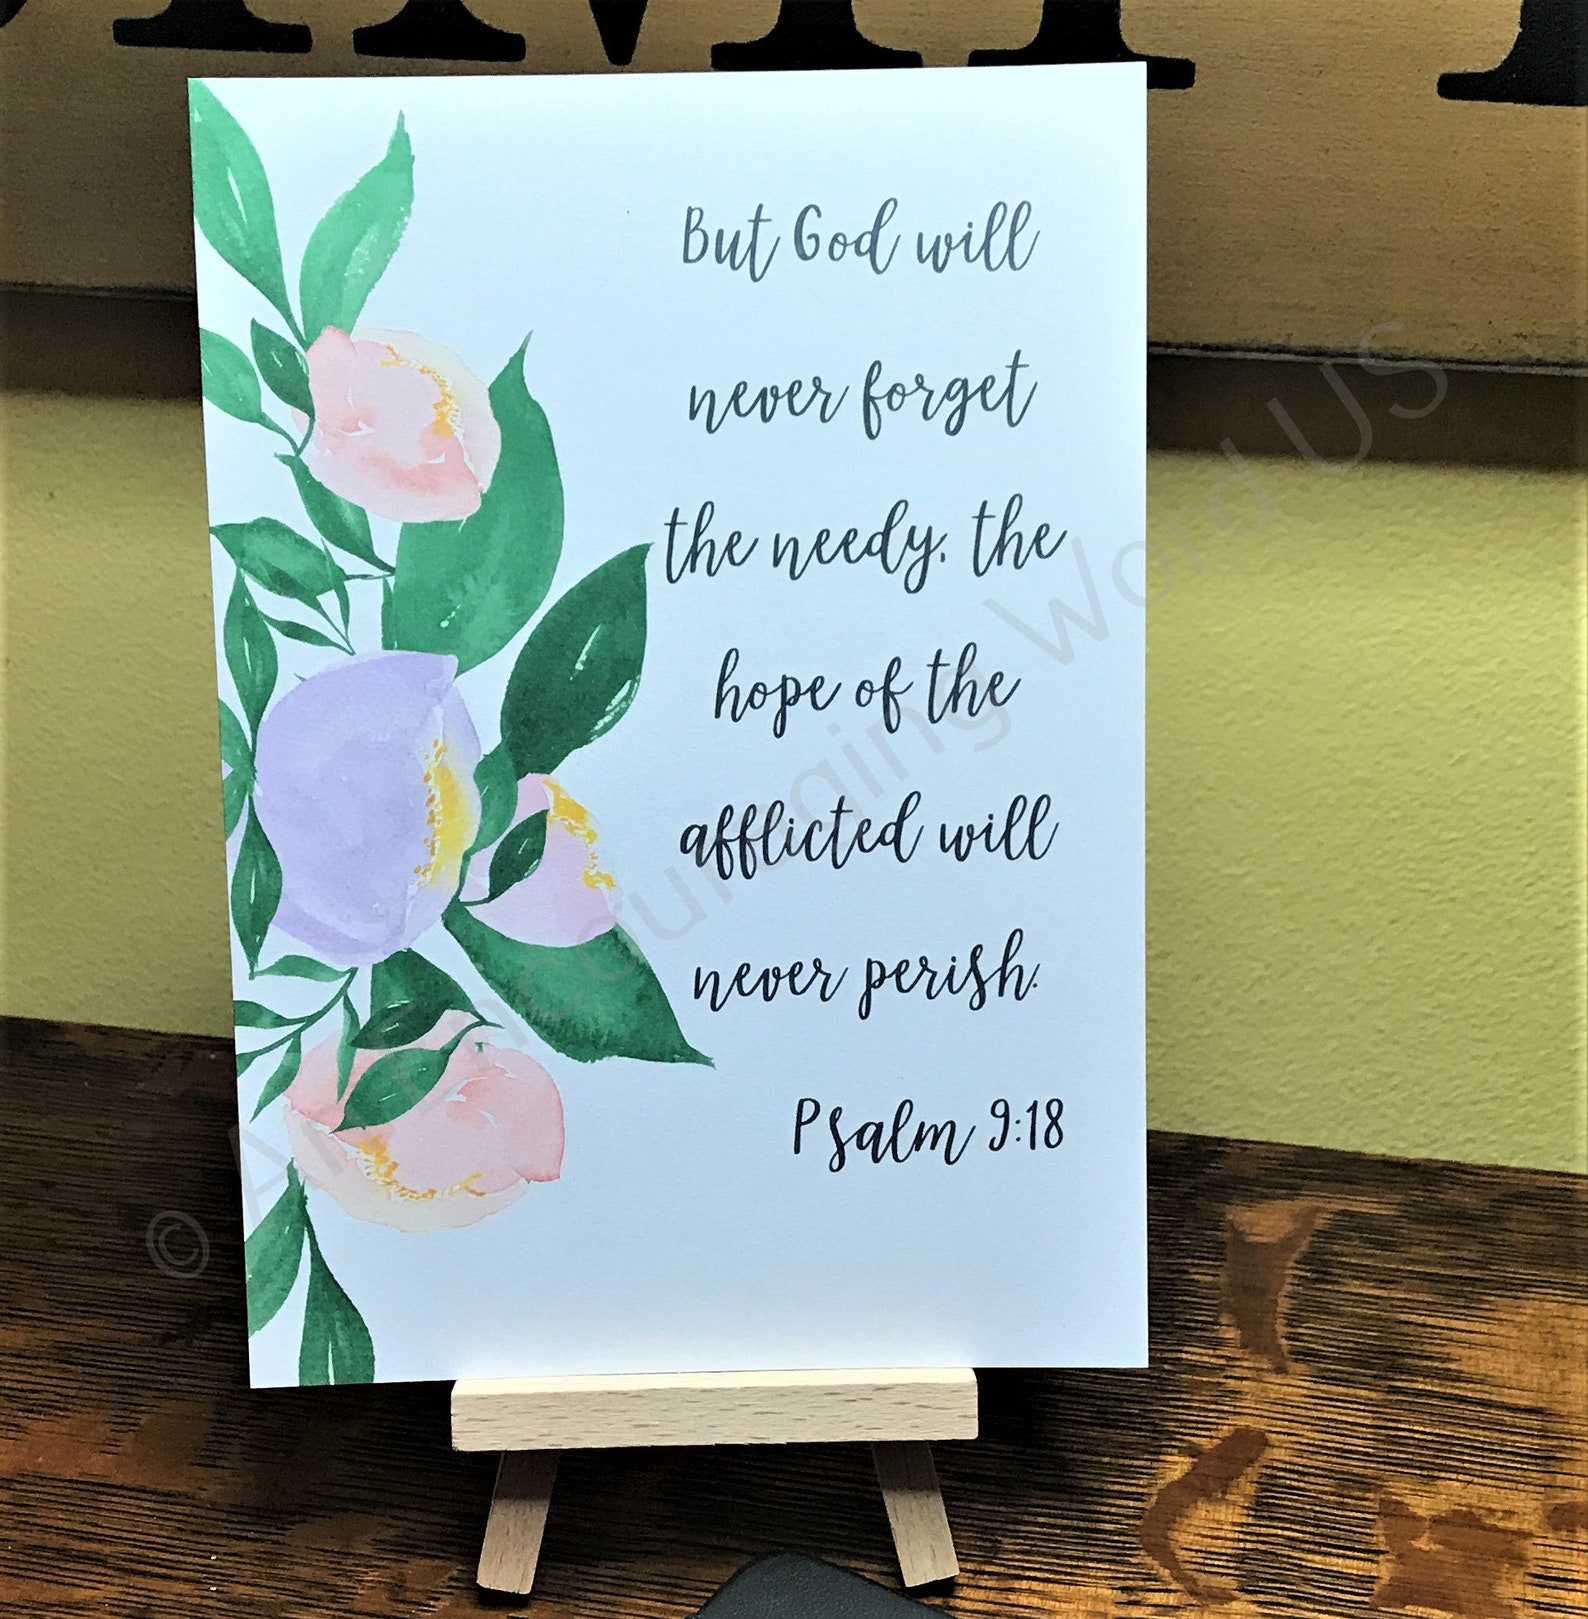 But God will
never forget
the needy, the
hope of the
afflicted will
never perish.
Psalm 9:18
© An Encouraging Word US